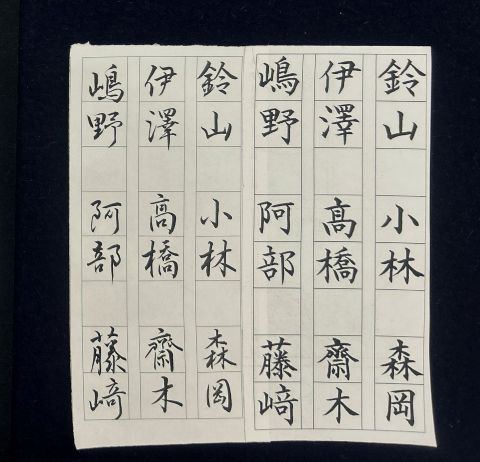 鈴山 小林 森岡
伊澤 髙橋 齋木
嶋野 阿部 藤﨑
鈴山 小林 森岡
伊澤 髙橋 齋木
嶋野 阿部 藤﨑